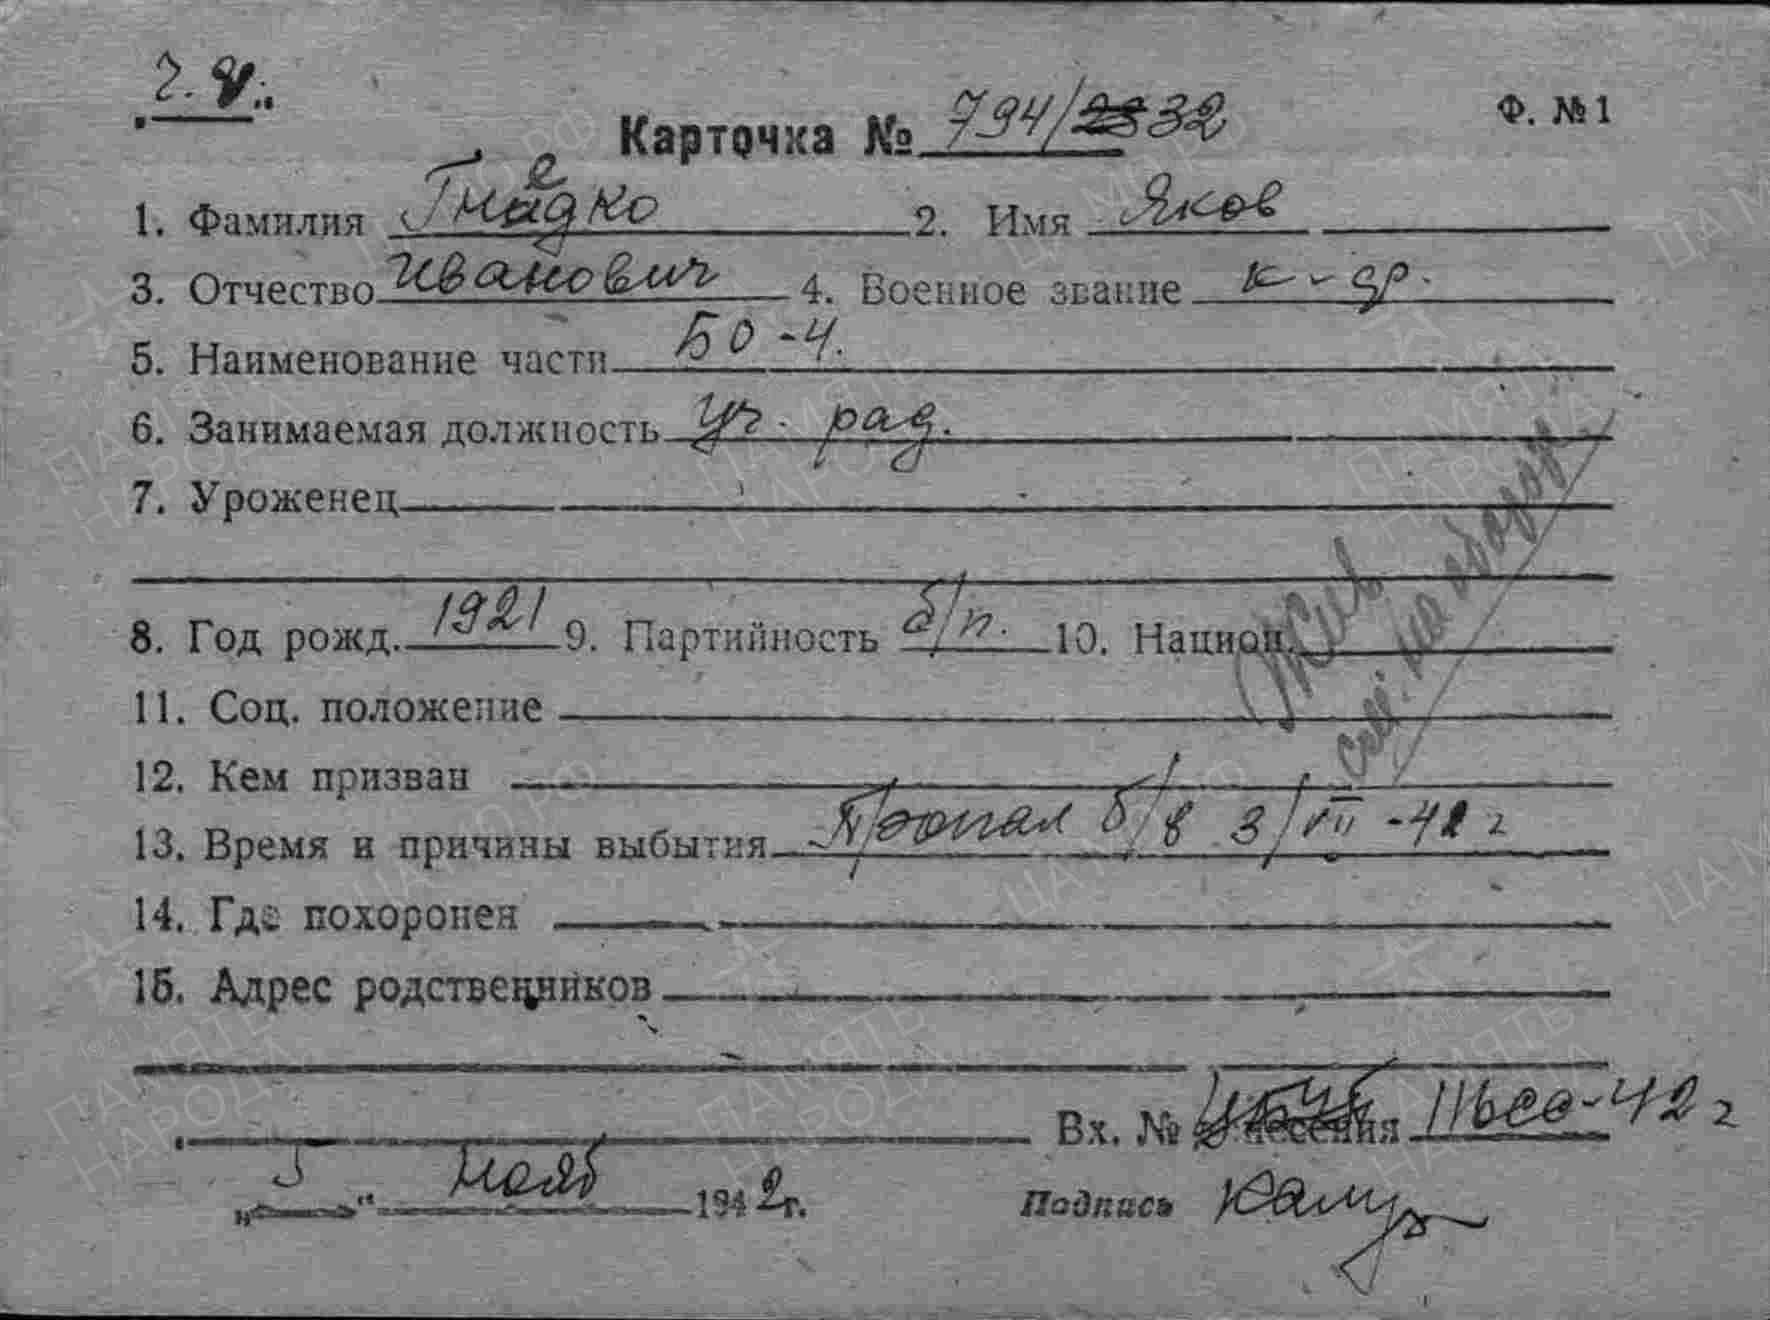 Ф. № 1
Карточка № 794/32
1. Фамилия Гнедко 2. Имя Яков
3. Отчество Иванович 4. Военное звание к-др.
5. Наименование части БО-4.
6. Занимаемая должность уч. рад.
7. Уроженец
8. Год рожд. 1921 9. Партийность б/п. 10. Национ.
11. Соц. положение
Жив
см. на обороте
12. Кем призван
13. Время и причины выбытия Пропал б/в 3/VII-42 г
14. Где похоронен
15. Адрес родственников
Вх. № донесения 116сс-42 г
„5“ нояб 1942 г.
Подпись